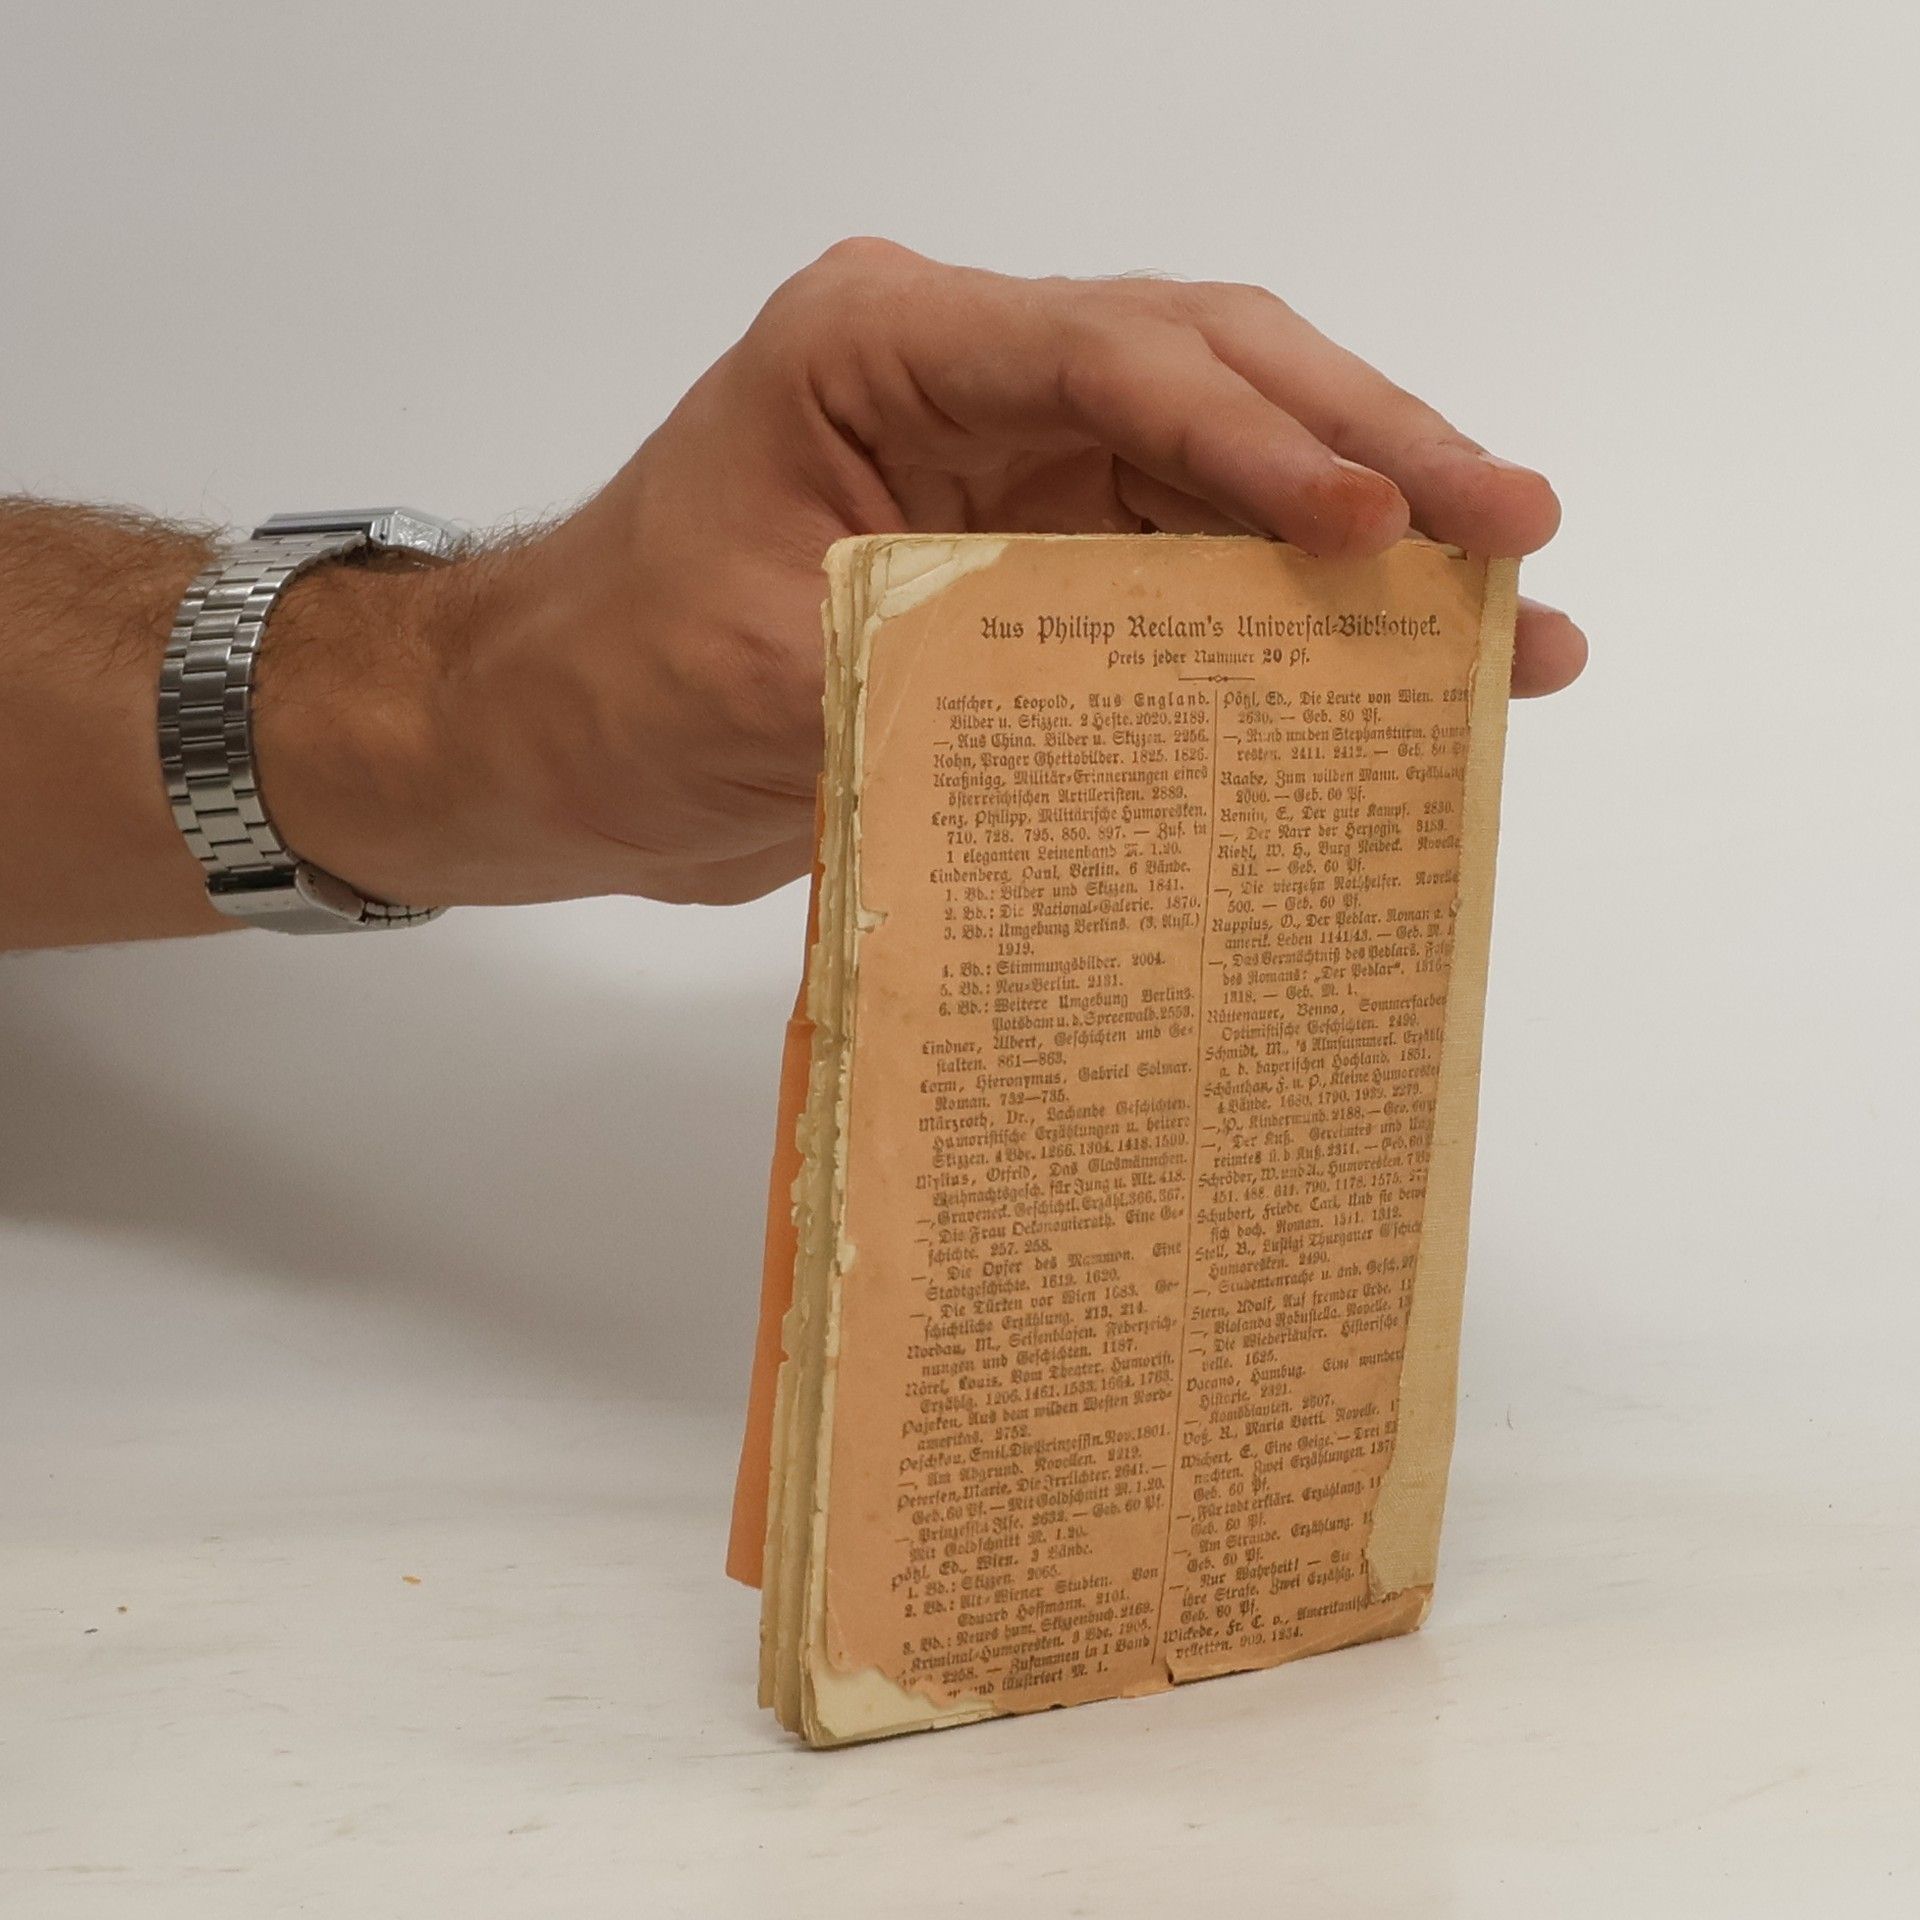 Aus Philipp Reclam's Universal-Bibliothek.
Preis jeder Nummer 20 Pf.
Katscher, Leopold, Aus England.
Bilder u. Skizzen. 2 Hefte. 2020. 2189.
—, Aus China. Bilder u. Skizzen. 2256.
Kohn, Prager Ghettobilder. 1825. 1826.
Kraßnigg, Militär-Erinnerungen eines
österreichischen Artilleristen. 2889.
Lenz, Philipp, Militärische Humoresken.
710. 728. 795. 850. 897. — Zus. in
1 eleganten Leinenband M. 1.20.
Lindenberg, Paul, Berlin. 6 Bände.
1. Bd.: Bilder und Skizzen. 1841.
2. Bd.: Die National-Galerie. 1870.
3. Bd.: Umgebung Berlins. (3. Aufl.)
1919.
4. Bd.: Stimmungsbilder. 2004.
5. Bd.: Neu-Berlin. 2131.
6. Bd.: Weitere Umgebung Berlins.
Potsdam u. d. Spreewald. 2553.
Lindner, Albert, Geschichten und Ge-
stalten. 861—863.
Lorm, Hieronymus, Gabriel Solmar.
Roman. 732—735.
Märzroth, Dr., Lachende Geschichten.
Humoristische Erzählungen u. heitere
Skizzen. 4 Bde. 1266. 1304. 1418. 1599.
Mylius, Otfrid, Das Glasmännchen.
Weihnachtsgesch. für Jung u. Alt. 418.
—, Graveneck. Geschichtl. Erzähl. 366. 367.
—, Die Frau Oekonomierath. Eine Ge-
schichte. 257. 258.
—, Die Opfer des Mammon. Eine
Stadtgeschichte. 1619. 1620.
—, Die Türken vor Wien 1683. Ge-
schichtliche Erzählung. 213. 214.
Nordau, M., Seifenblasen. Federzeich-
nungen und Geschichten. 1187.
Nötel, Louis, Vom Theater. Humorist.
Erzählg. 1206. 1461. 1533. 1664. 1763.
Pajeken, Aus dem wilden Westen Nord-
amerikas. 2752.
Peschkau, Emil, Die Prinzessin. Nov. 1801.
—, Am Abgrund. Novellen. 2219.
Petersen, Marie, Die Irrlichter. 2641. —
Geb. 60 Pf. — Mit Goldschnitt M. 1.20.
—, Prinzessin Ilse. 2632. — Geb. 60 Pf.
Mit Goldschnitt M. 1.20.
Pötzl, Ed., Wien. 3 Bände.
1. Bd.: Skizzen. 2065.
2. Bd.: Alt-Wiener Studien. Von
Eduard Hoffmann. 2101.
3. Bd.: Neues hum. Skizzenbuch. 2169.
Kriminal-Humoresken. 3 Bde. 1905.
2258. — Zusammen in 1 Band
und illustriert M. 1.
Pötzl, Ed., Die Leute von Wien.
2630. — Geb. 80 Pf.
—, Rund um den Stephansturm. Humo-
resken. 2411. 2412. — Geb. 80 Pf.
Raabe, Zum wilden Mann. Erzählung
2000. — Geb. 60 Pf.
Remin, E., Der gute Kampf. 2830.
—, Der Narr der Herzogin. 3159.
Riehl, W. H., Burg Neideck. Novelle
811. — Geb. 60 Pf.
—, Die vierzehn Nothhelfer. Novelle
500. — Geb. 60 Pf.
Ruppius, O., Der Pedlar. Roman a. d.
amerik. Leben 1141/43. — Geb. M. 1
—, Das Vermächtniß des Pedlars. Folge
des Romans: „Der Pedlar“. 1316—
1318. — Geb. M. 1.
Rüttenauer, Benno, Sommerfarben
Optimistische Geschichten. 2499.
Schmidt, M., 's Almstummerl. Erzähl
a. d. bayerischen Hochland. 1851.
Schönthan, F. u. P., Kleine Humoresken
4 Bände. 1680. 1790. 1939. 2279.
—, P., Kindermund. 2188. — Geb. 60 Pf
—, Der Kuß. Gereimtes und Unge
reimtes ü. d. Kuß. 2311. — Geb. 60
Schröder, W. und A., Humoresken. 7 Bd
451. 488. 611. 790. 1178. 1575.
Schubert, Friedr. Carl, Und sie bewe
sich doch. Roman. 1311. 1312.
Stoll, B., Lustigi Thurgauer G'schich
Humoresken. 2490.
—, Studentenrache u. and. Gesch.
Stern, Adolf, Auf fremder Erde.
—, Violanda Robustella. Novelle.
—, Die Wiedertäufer. Historische
velle. 1625.
Vacano, Humbug. Eine wunderl
Historie. 2321.
—, Komödianten. 2607.
Voß, R., Maria Botti. Novelle.
Wichert, E., Eine Geige. — Drei
nachten. Zwei Erzählungen. 1370
Geb. 60 Pf.
—, Für todt erklärt. Erzählung.
Geb. 60 Pf.
—, Am Strande. Erzählung.
Geb. 60 Pf.
—, Nur Wahrheit! — Sie
ihre Strafe. Zwei Erzählg.
Geb. 60 Pf.
Wickede, Fr. C. v., Amerikanische No-
velletten. 909. 1234.